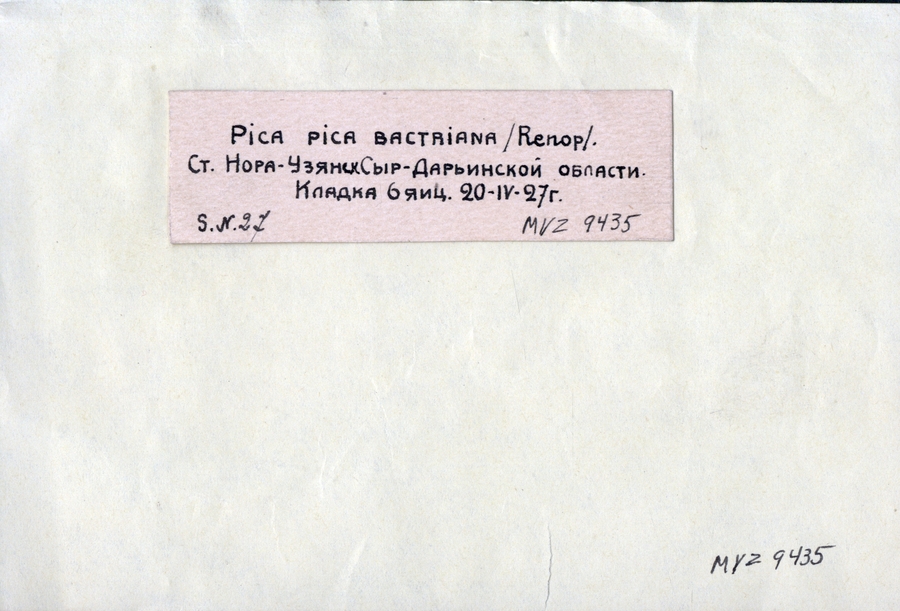 Pica pica bactriana /Renop/.
Ст. Нора-Узянск Сыр-Дарьинской области.
Кладка 6 яиц. 20-IV-27г.
S.N.27 MVZ 9435
MVZ 9435